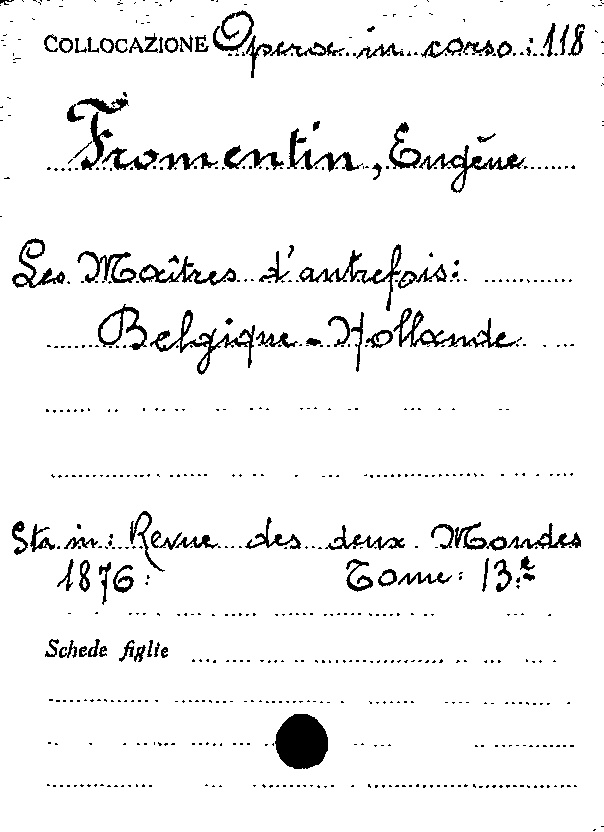 COLLOCAZIONE Opera in corso: 118
Fromentin, Eugène
Les Maîtres d'autrefois:
Belgique - Hollande
Sta in: Revue des deux Mondes
1876: Tome: 13.e
Schede figlie